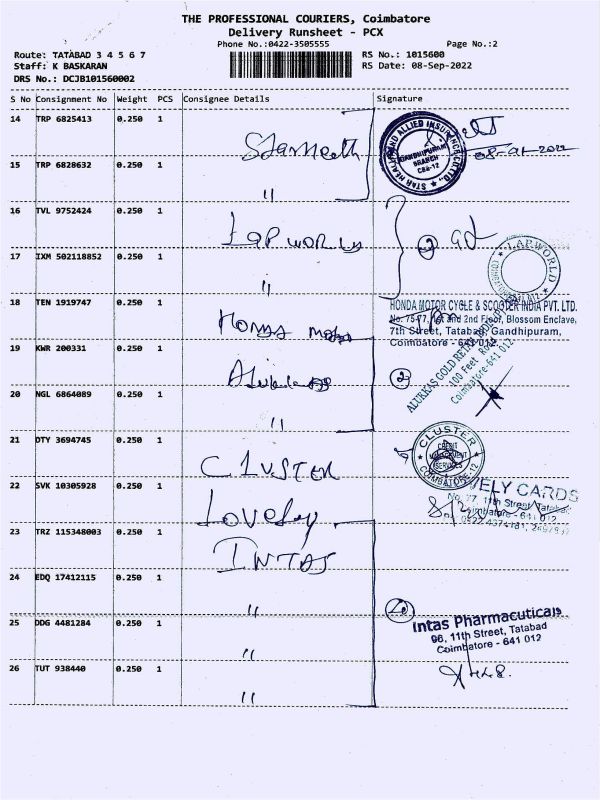 THE PROFESSIONAL COURIERS, Coimbatore
Delivery Runsheet - PCX
Phone No.:0422-3505555
Page No.:2
Route: TATABAD 3 4 5 6 7
RS No.: 1015600
Staff: K BASKARAN
RS Date: 08-Sep-2022
DRS No.: DCJB101560002
S No Consignment No Weight PCS Consignee Details Signature
14 TRP 6825413 0.250 1
15 TRP 6828632 0.250 1 "
STAR HEALTH AND ALLIED INSURANCE CO LTD.
GANDHIPURAM
BRANCH
CBE-12
16 TVL 9752424 0.250 1 Lap world
17 IXM 502118852 0.250 1 "
LAP WORLD
18 TEN 1919747 0.250 1 Honda moto
HONDA MOTOR CYCLE & SCOOTER INDIA PVT. LTD.
No. 75-77, 1st and 2nd Floor, Blossom Enclave,
7th Street, Tatabad, Gandhipuram,
Coimbatore - 641 012
19 KWR 200331 0.250 1
20 NGL 6864089 0.250 1 "
100 Feet Road
Coimbatore-641 012
21 DTY 3694745 0.250 1 CLUSTER
CLUSTER
CREDIT
MANAGEMENT
SERVICES
COIMBATORE-12
22 SVK 10305928 0.250 1 Lovely
LOVELY CARDS
No. 77, 11th Street, Tatabad
Coimbatore - 641 012
23 TRZ 115348003 0.250 1 INTAS
24 EDQ 17412115 0.250 1 "
25 DDG 4481284 0.250 1 "
Intas Pharmaceuticals
96, 11th Street, Tatabad
Coimbatore - 641 012
26 TUT 938440 0.250 1 "